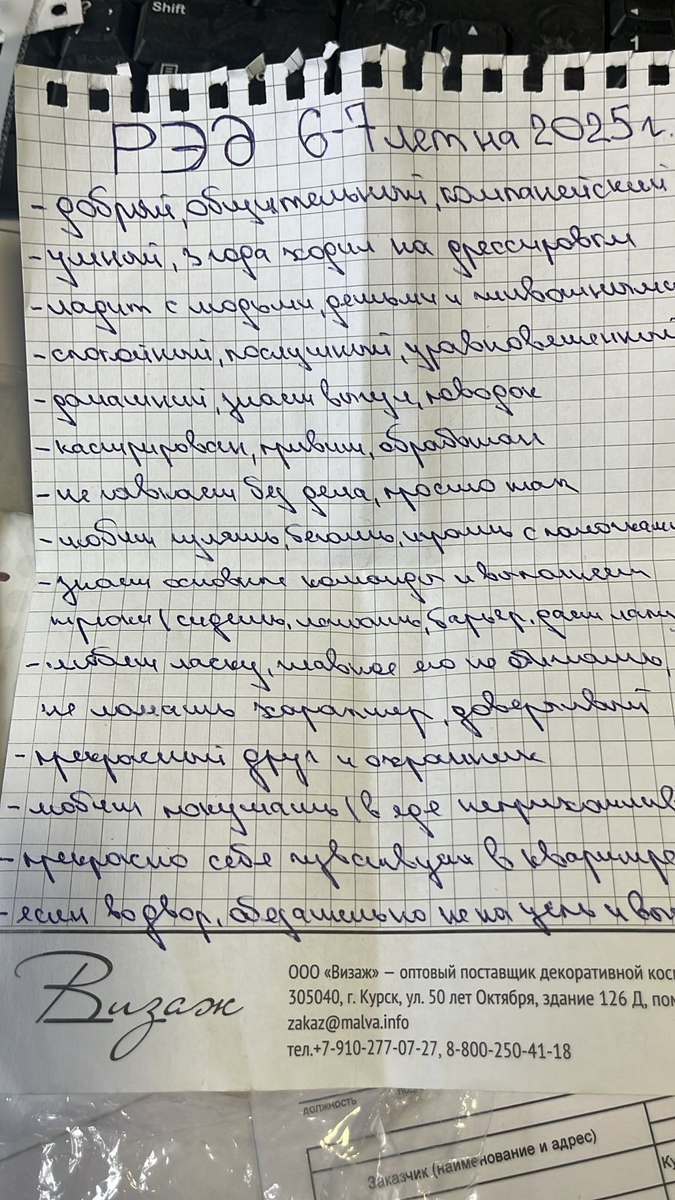 Shift
РЭД 6-7 лет на 2025 г.
- добрый, общительный, компанейский
- умный, 3 года ходил на дрессировки
- ладит с людьми, детьми и животными
- спокойный, послушный, уравновешенный
- домашний, знает выгул, поводок
- кастрирован, привит, обработан
- не гавкает без дела, просто так
- любит гулять, бегать, играть с палочками
- знает основные команды и выполняет
трюки (сидеть, лежать, барьер, дает лапу
- любит ласку, главное его не обижать,
не ломать характер, доверчивый
- прекрасный друг и охранник
- любит покушать (в еде неприхотлив
- прекрасно себя чувствует в квартире
- если во двор, обязательно не на цепь и вы
Визаж
ООО «Визаж» – оптовый поставщик декоративной кос
305040, г. Курск, ул. 50 лет Октября, здание 126 Д, пом
zakaz@malva.info
тел.+7-910-277-07-27, 8-800-250-41-18
должность
Заказчик (наименование и адрес)